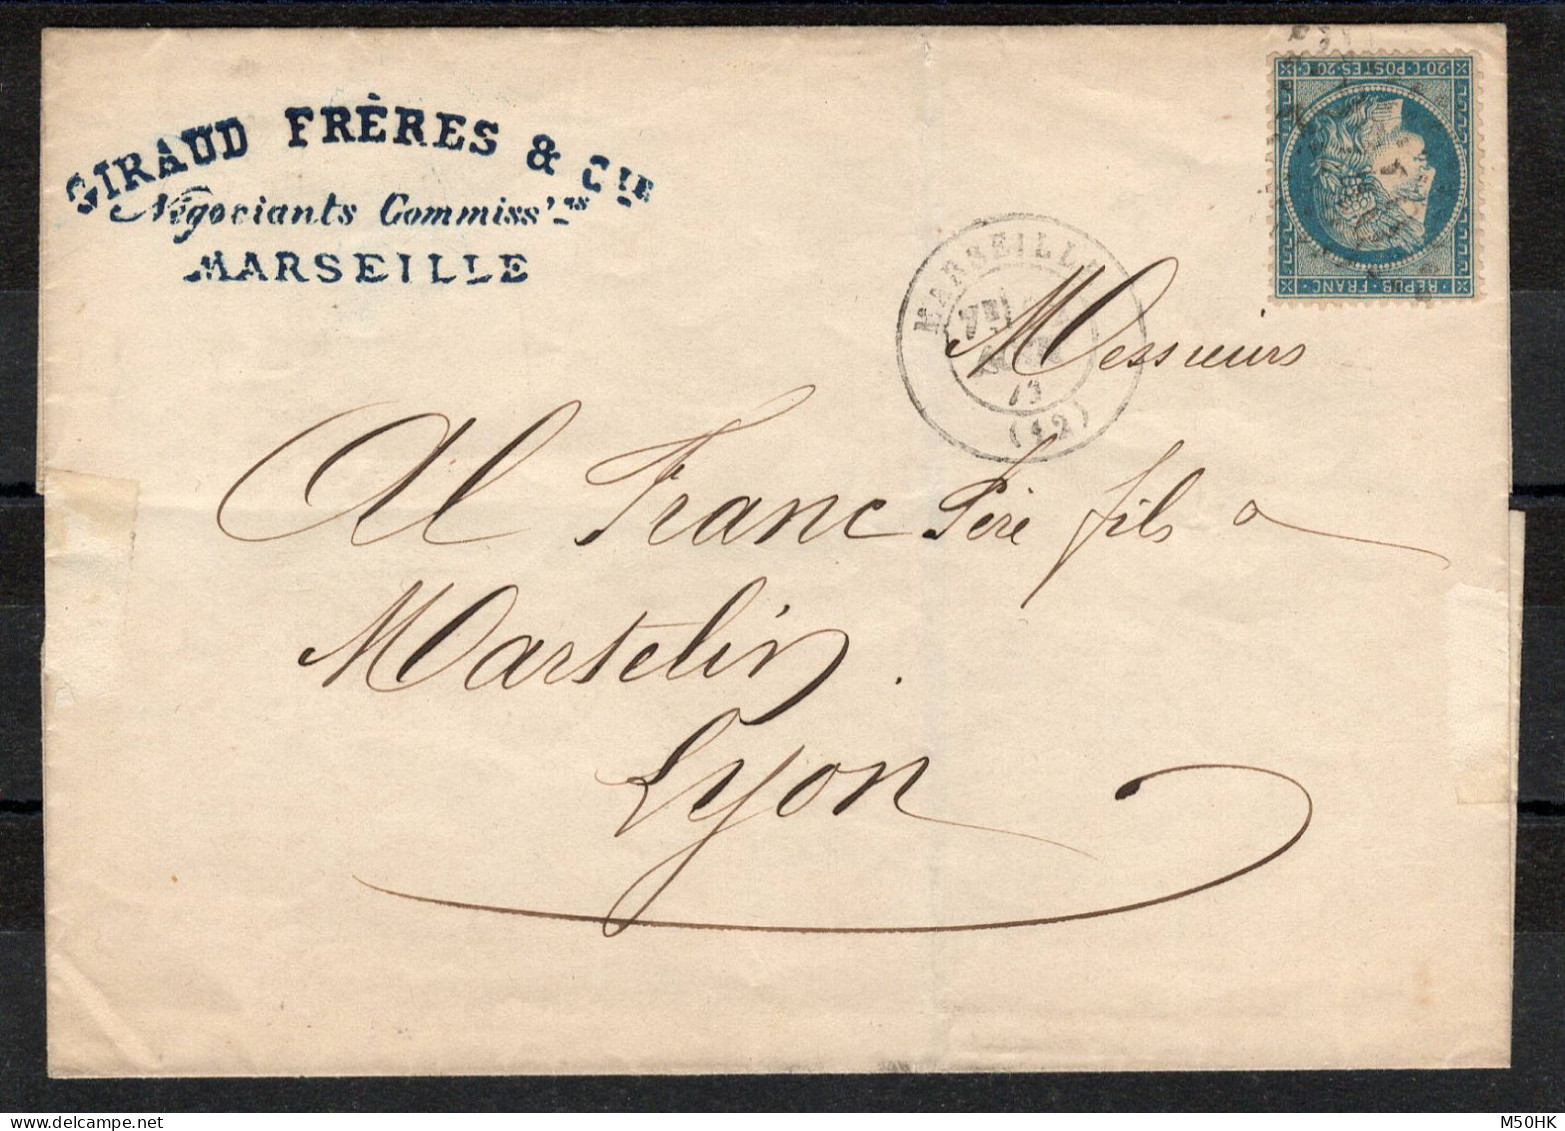 GIRAUD FRÈRES & CIE
Négociants Commiss'res
MARSEILLE
20 C · POSTES · 20 C
REPUB · FRANC
MARSEILLE
73
(12)
Messieurs
Al Franc Père fils &
Martelin.
Lyon
M50HK